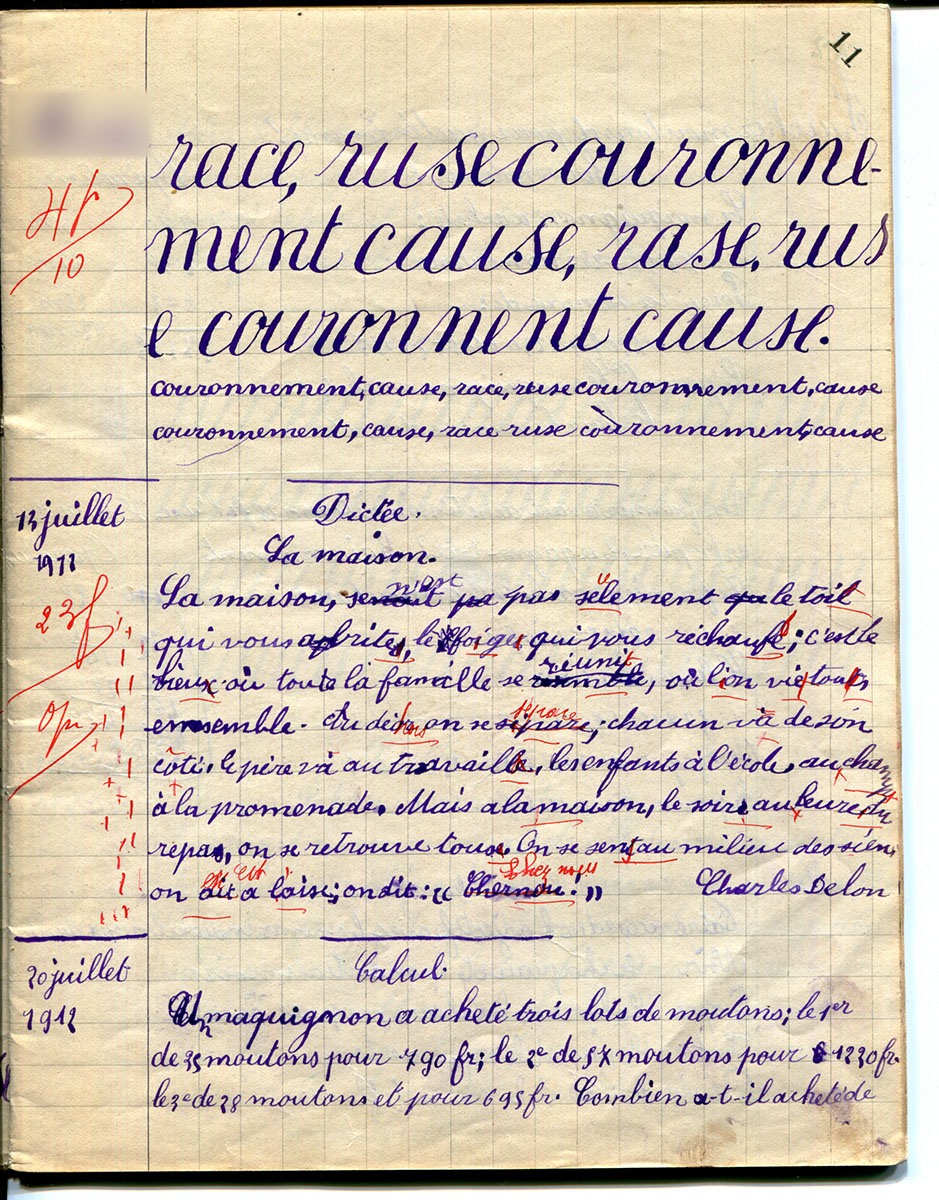 11
race, ruse couronne-
ment cause, rase, rus
e couronnent cause.
couronnement, cause, race, ruse couronnement, cause
couronnement, cause, race ruse couronnement, cause
10
13 juillet
1912
Dictée.
La maison.
La maison, se n'est pa pas sëlement qu le toit
qui vous abrites, le foiger qui vous réchaufe; c'est le
bieux où toute la famille se réunit, où l'on vie tous
23f
emsemble. Au dehors on se sépare; chacun và de son
0pr
côté, le père và au travaille, les enfants à l'école, au champ
à la promenade. Mais a la maison, le soir, au leure du
repas, on se retrouve tous. On se sent au milieu des sien,
on est à laise; on dit: "Chez nous." Charles Delon
20 juillet
1912
Calcul.
Un maquignon a acheté trois lots de moutons; le 1er
de 35 moutons pour 790 fr; le 2e de 57 moutons pour 1230 fr.
le 3e de 28 moutons et pour 695 fr. Combien a-t-il acheté de